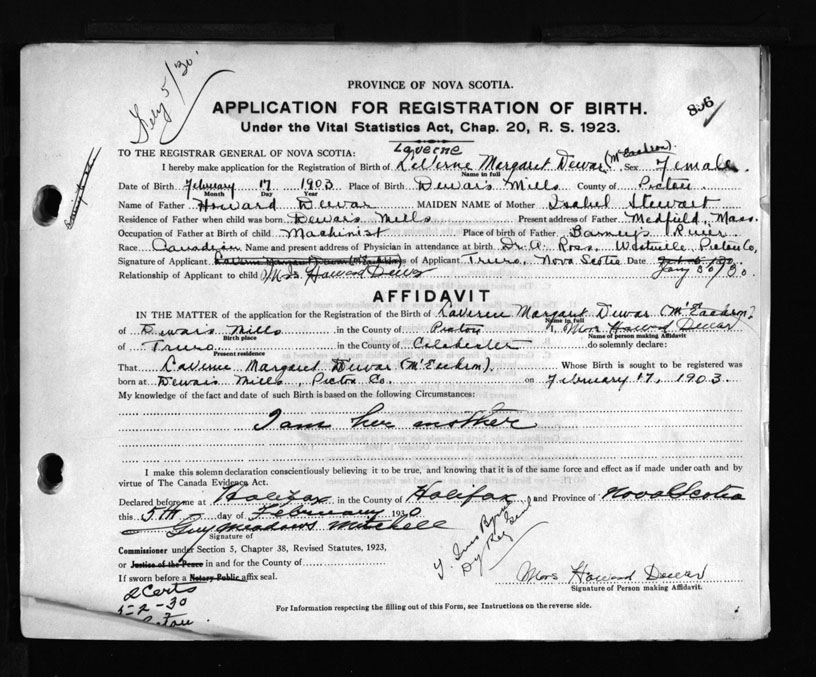 Feby 5/30.
PROVINCE OF NOVA SCOTIA.
APPLICATION FOR REGISTRATION OF BIRTH.
Under the Vital Statistics Act, Chap. 20, R. S. 1923.
Laverne
TO THE REGISTRAR GENERAL OF NOVA SCOTIA:
I hereby make application for the Registration of Birth of LaVerne Margaret Dewar (McEachron) Sex Female
Name in full
Date of Birth February 17 1903 Place of Birth Dewar's Mills County of Pictou
Month Day Year
Name of Father Howard Dewar MAIDEN NAME of Mother Isabel Stewart
Residence of Father when child was born Dewar's Mills Present address of Father Medfield, Mass.
Occupation of Father at Birth of child Machinist Place of birth of Father Barney's River
Race Canadian Name and present address of Physician in attendance at birth Dr. A. Ross. Westville, Pictou Co,
Signature of Applicant of Applicant Truro, Nova Scotia Date Jany 30/30.
Relationship of Applicant to child Mrs Howard Dewar
AFFIDAVIT
IN THE MATTER of the application for the Registration of the Birth of LaVerne Margaret Dewar (McEachron)
Name in full
of Dewar's Mills in the County of Pictou I, Mrs Howard Dewar
Birth place Name of person making Affidavit
of Truro in the County of Colchester do solemnly declare:
Present residence
That LaVerne Margaret Dewar (McEachron). Whose Birth is sought to be registered was
born at Dewars Mills, Pictou Co. on February 17, 1903.
My knowledge of the fact and date of such Birth is based on the following Circumstances:
I am her mother
I make this solemn declaration conscientiously believing it to be true, and knowing that it is of the same force and effect as if made under oath and by
virtue of The Canada Evidence Act.
Declared before me at Halifax in the County of Halifax and Province of Nova Scotia
this 5th day of February 1930
Guy Meadows Mitchell
Signature of
Commissioner under Section 5, Chapter 38, Revised Statutes, 1923,
or Justice of the Peace in and for the County of
If sworn before a Notary Public affix seal.
Dy Reg Genl
Mrs Howard Dewar
Signature of Person making Affidavit.
2 Certs
5-2-30
For Information respecting the filling out of this Form, see Instructions on the reverse side.